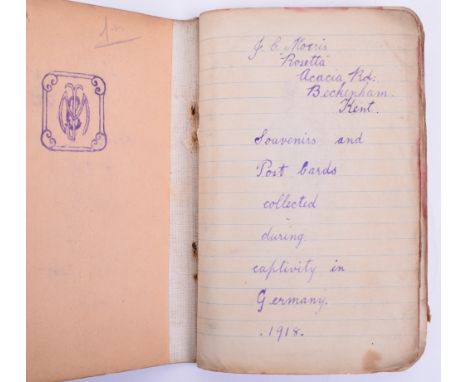 J. C. Morris
Rosetta
Acacia Rd:
Beckenham.
Kent.
Souvenirs and
Post Cards
collected
during
captivity in
Germany.
.1918.